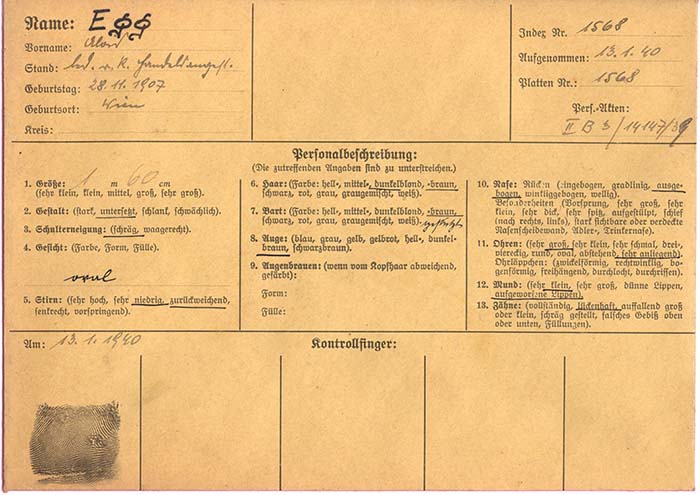 Name: Egg
Vorname: Alois
Stand: led. r. k. Handelsangest.
Geburtstag: 28.11.1907
Geburtsort: Wien
Kreis:
Index Nr. 1568
Aufgenommen: 13.1.40
Platten Nr.: 1568
Pers.-Akten:
II B 3 / 14147/39
Personalbeschreibung:
(Die zutreffenden Angaben sind zu unterstreichen.)
1. Größe: 1 m 60 cm
(sehr klein, klein, mittel, groß, sehr groß).
2. Gestalt: (stark, untersetzt, schlank, schwächlich).
3. Schulterneigung: (schräg, waagerecht).
4. Gesicht: (Farbe, Form, Fülle).
oval
5. Stirn: (sehr hoch, sehr niedrig, zurückweichend,
senkrecht, vorspringend).
6. Haar: (Farbe: hell-, mittel-, dunkelblond, -braun,
schwarz, rot, grau, graugemischt, weiß).
7. Bart: (Farbe: hell-, mittel-, dunkelblond, -braun,
schwarz, rot, grau, graugemischt, weiß).
8. Auge: (blau, grau, gelb, gelbrot, hell-, dunkel-
braun, schwarzbraun).
9. Augenbrauen: (wenn vom Kopfhaar abweichend,
gefärbt):
Form:
Fülle:
10. Nase: Rücken (eingebogen, gradlinig, ausge-
bogen, winkliggebogen, wellig).
Besonderheiten (Vorsprung, sehr groß, sehr
klein, sehr dick, sehr spitz, aufgestülpt, schief
nach rechts, links), stark sichtbare oder verdeckte
Nasenscheidewand, Adler-, Trinkernase).
11. Ohren: (sehr groß, sehr klein, sehr schmal, drei-,
viereckig, rund, oval, abstehend, sehr anliegend)
Ohrläppchen: (zwickelförmig, rechtwinklig, bo-
genförmig, freihängend, durchlocht, durchrissen).
12. Mund: (sehr klein, sehr groß, dünne Lippen,
aufgeworfene Lippen).
13. Zähne: (vollständig, lückenhaft, auffallend groß
oder klein, schräg gestellt, falsches Gebiß oben
oder unten, Füllungen).
Am: 13.1.1940
Kontrollfinger: